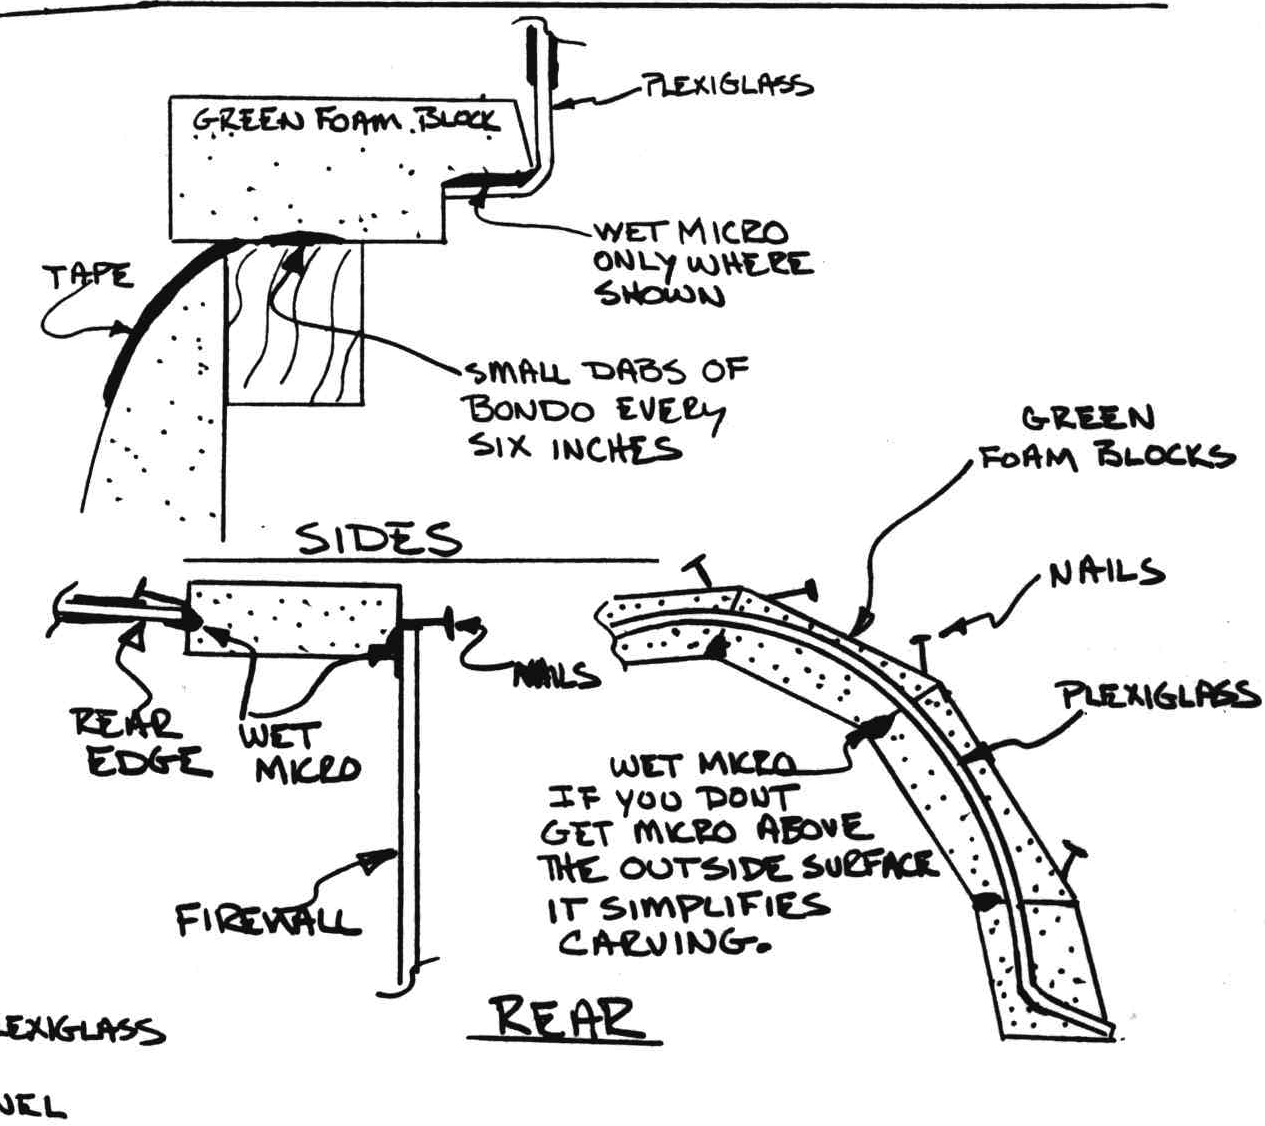 PLEXIGLASS
GREEN FOAM BLOCK
WET MICRO
ONLY WHERE
SHOWN
TAPE
SMALL DABS OF
BONDO EVERY
SIX INCHES
GREEN
FOAM BLOCKS
SIDES
NAILS
NAILS
PLEXIGLASS
REAR
EDGE
WET
MICRO
WET MICRO
IF YOU DONT
GET MICRO ABOVE
THE OUTSIDE SURFACE
IT SIMPLIFIES
CARVING.
FIREWALL
REAR
LEXIGLASS
NEL